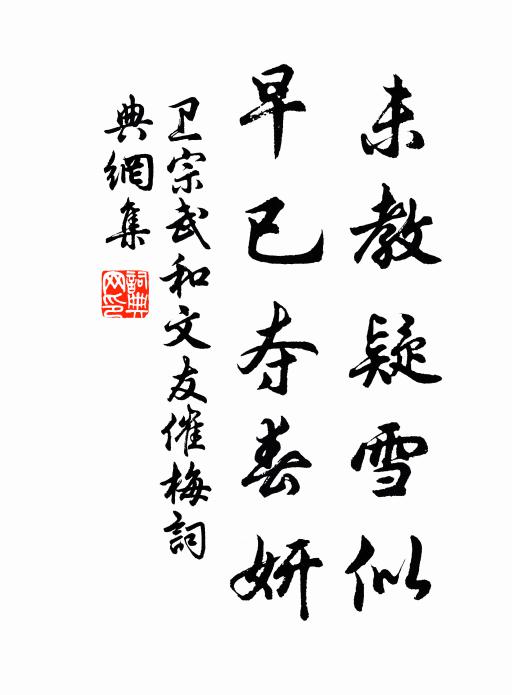 未教疑雪似
早已夺春妍
卫宗武和文友催梅詞
典網集
詞典網印